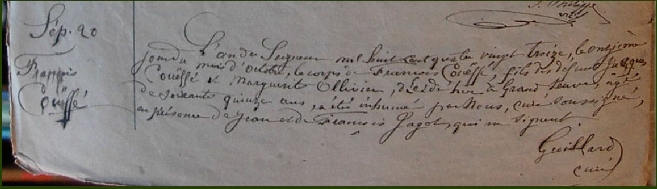 Sép. 20
François
Couëffé
L'an du Seigneur mil huit cent quatre vingt treize, le onzième
jour du mois d'Octobre, le corps de François Couëffé, fils des défunts Jacques
Couëffé et Marguerite Ollivier, décédé hier à Grand'
de soixante quinze ans, a été inhumé par Nous, curé soussigné,
en présence de Jean et de François Jagot, qui ne signent.
Guillard
curé